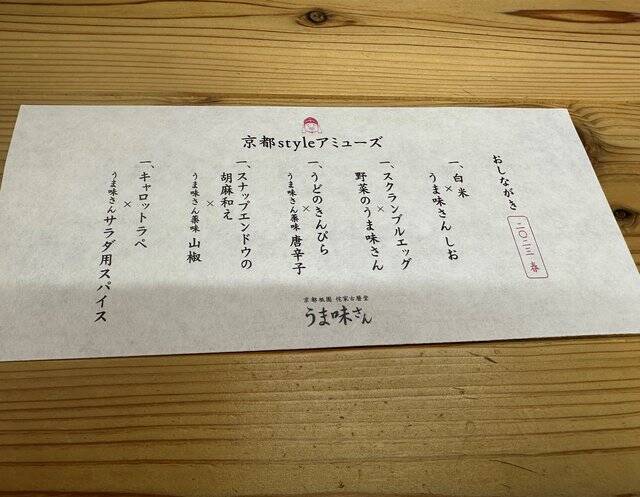 京都styleアミューズ
おしながき
二〇二三 春
一、白米
×
うま味さん しお
一、スクランブルエッグ
×
野菜のうま味さん
一、うどのきんぴら
×
うま味さん薬味 唐辛子
一、スナップエンドウの
胡麻和え
×
うま味さん薬味 山椒
一、キャロットラペ
×
うま味さんサラダ用スパイス
京都祇園 侘家古暦堂
うま味さん